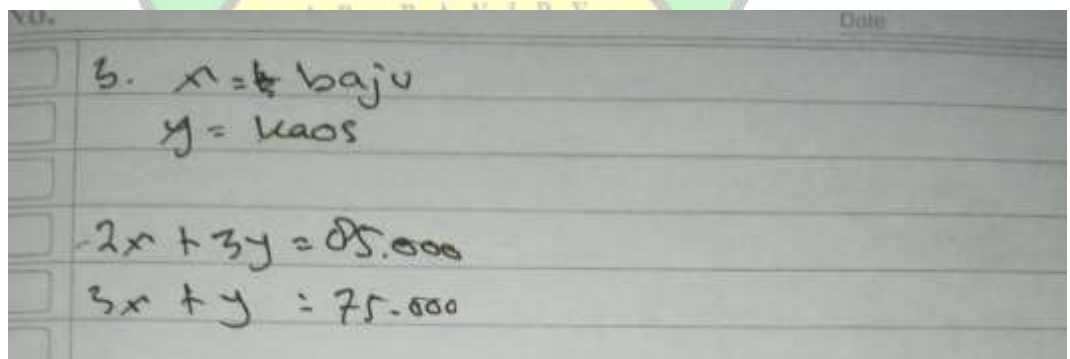 A R - R A N I R Y
NO.
Date
3. x = baju
y = kaos
2x + 3y = 85.000
3x + y = 75.000